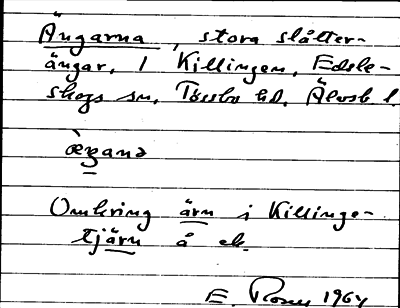 Ängarna, stora slåtter-
ängar. I Killingen, Edsle-
skogs sn, Tössbo hd, Älvsb l.
ægana
Omkring ärn i Killinge-
tjärn å ek.
E. Rosen 1964